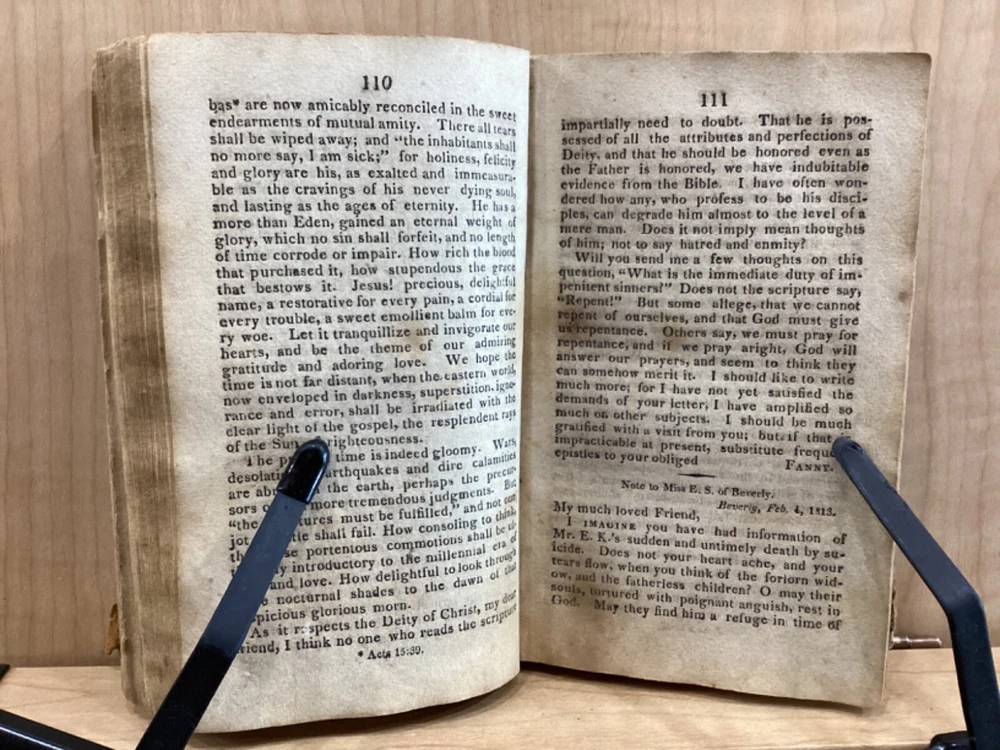 110
bas* are now amicably reconciled in the sweet
endearments of mutual amity. There all tears
shall be wiped away; and "the inhabitants shall
no more say, I am sick;" for holiness, felicity
and glory are his, as exalted and immeasura-
ble as the cravings of his never dying soul,
and lasting as the ages of eternity. He has a
more than Eden, gained an eternal weight of
glory, which no sin shall forfeit, and no length
of time corrode or impair. How rich the blood
that purchased it, how stupendous the grace
that bestows it. Jesus! precious, delightful
name, a restorative for every pain, a cordial for
every trouble, a sweet emollient balm for eve-
ry woe. Let it tranquillize and invigorate our
hearts, and be the theme of our admiring
gratitude and adoring love. We hope the
time is not far distant, when the eastern world,
now enveloped in darkness, superstition, igno-
rance and error, shall be irradiated with the
clear light of the gospel, the resplendent rays
of the Sun righteousness.
The time is indeed gloomy. Wars,
earthquakes and dire calamities
are the earth, perhaps the precur-
sors more tremendous judgments. But
"the must be fulfilled," and not one
jot shall fail. How consoling to think,
portentous commotions shall be
introductory to the millennial era of
and love. How delightful to look through
nocturnal shades to the dawn of that
glorious morn.
As it respects the Deity of Christ, my dear
friend, I think no one who reads the scripture
* Acts 15:39.
111
impartially need to doubt. That he is pos-
sessed of all the attributes and perfections of
Deity, and that he should be honored even as
the Father is honored, we have indubitable
evidence from the Bible. I have often won-
dered how any, who profess to be his disci-
ples, can degrade him almost to the level of a
mere man. Does it not imply mean thoughts
of him; not to say hatred and enmity?
Will you send me a few thoughts on this
question, "What is the immediate duty of im-
penitent sinners?" Does not the scripture say,
"Repent!" But some allege, that we cannot
repent of ourselves, and that God must give
us repentance. Others say, we must pray for
repentance, and if we pray aright, God will
answer our prayers, and seem to think they
can somehow merit it. I should like to write
much more; for I have not yet satisfied the
demands of your letter, I have amplified so
much on other subjects. I should be much
gratified with a visit from you; but if that is
impracticable at present, substitute
epistles to your obliged FANNY.
Note to Miss E. S. of Beverly.
Beverly, Feb. 4, 1813.
My much loved Friend,
I IMAGINE you have had information of
Mr. E. K.'s sudden and untimely death by su-
icide. Does not your heart ache, and your
tears flow, when you think of the forlorn wid-
ow, and the fatherless children? O may their
souls, tortured with poignant anguish, rest in
God. May they find him a refuge in time of